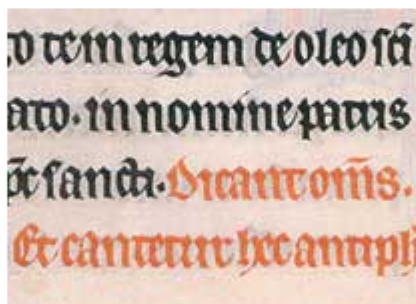 to te in regem de oleo sc̄i
ato. in nomine patris
sp̄c sancti. Dicant om̄s.
Et cantetur hec antiph